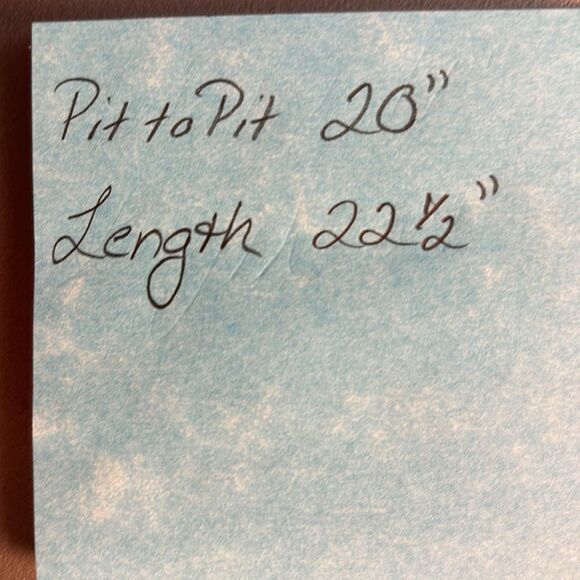 Pit to Pit 20"
Length 22 1/2"